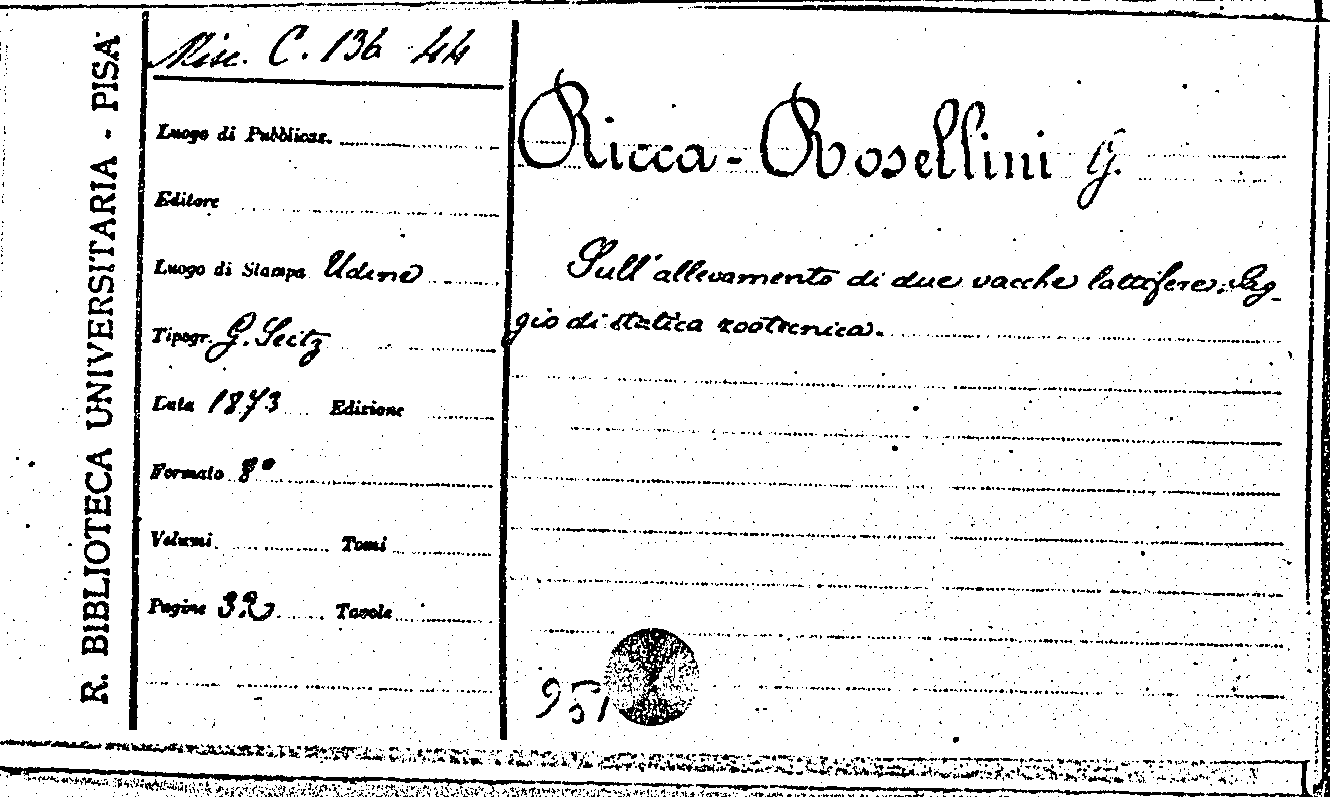 R. BIBLIOTECA UNIVERSITARIA - PISA
Misc. C. 136 44
Luogo di Pubblicaz.
Editore
Luogo di Stampa Udine
Tipogr. G. Seitz
Data 1873 Edizione
Formato 8°
Volumi Tomi
Pagine 32 Tavole
Ricca-Rosellini G.
Sull'allevamento di due vacche lattifere. Sag-
gio di statica zootecnica.
951